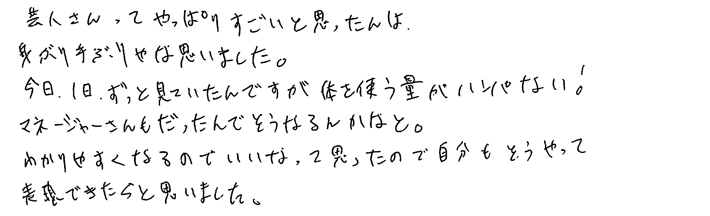 芸人さんってやっぱりすごいと思ったんは、
身がり手ぶりやな思いました。
今日、1日、ずっと見ていたんですが体を使う量がハンパない!
マネージャーさんもだったんでそうなるんかなと。
わかりやすくなるのでいいなって思ったので自分もそうやって
表現できたらと思いました。